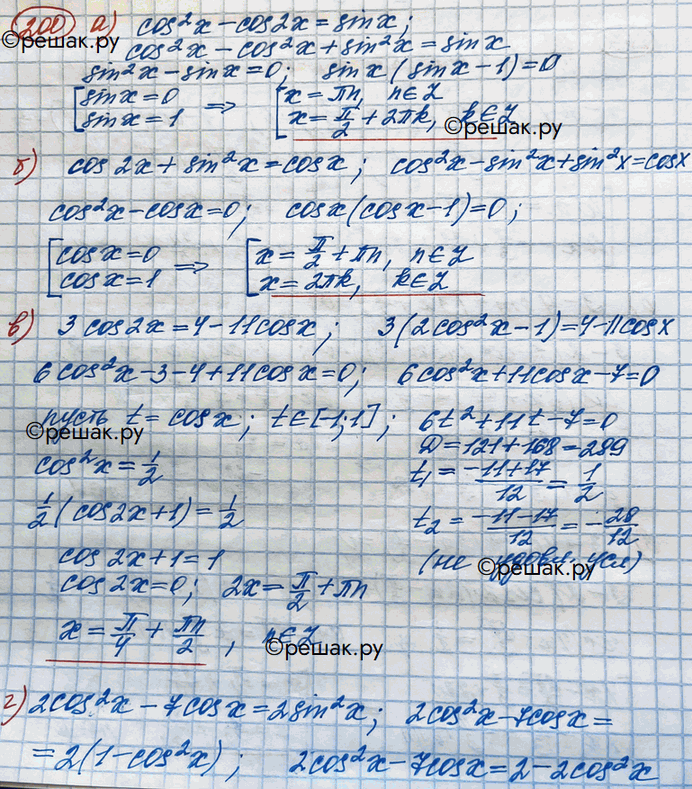 200 а) cos²x - cos2x = sinx;
©решак.ру
cos²x - cos²x + sin²x = sinx
sin²x - sinx = 0; sinx (sinx - 1) = 0
[sinx = 0 => [x = πn, n∈Z
[sinx = 1 [x = π/2 + 2πk, k∈Z
©решак.ру
б) cos2x + sin²x = cosx; cos²x - sin²x + sin²x = cosx
cos²x - cosx = 0; cosx(cosx - 1) = 0;
[cosx = 0 => [x = π/2 + πn, n∈Z
[cosx = 1 [x = 2πk, k∈Z
в) 3cos2x = 4 - 11cosx; 3(2cos²x - 1) = 4 - 11cosx
6cos²x - 3 - 4 + 11cosx = 0; 6cos²x + 11cosx - 7 = 0
пусть t = cosx; t∈[-1;1]; 6t² + 11t - 7 = 0
©решак.ру
D = 121 + 168 = 289
cos²x = 1/2
t₁ = (-11+17)/12 = 1/2
1/2(cos2x + 1) = 1/2
t₂ = (-11-17)/12 = -28/12
cos2x + 1 = 1
(не удовл. усл)
©решак.ру
cos2x = 0; 2x = π/2 + πn
x = π/4 + πn/2, n∈Z
©решак.ру
г) 2cos²x - 7cosx = 2sin²x; 2cos²x - 7cosx =
= 2(1 - cos²x); 2cos²x - 7cosx = 2 - 2cos²x